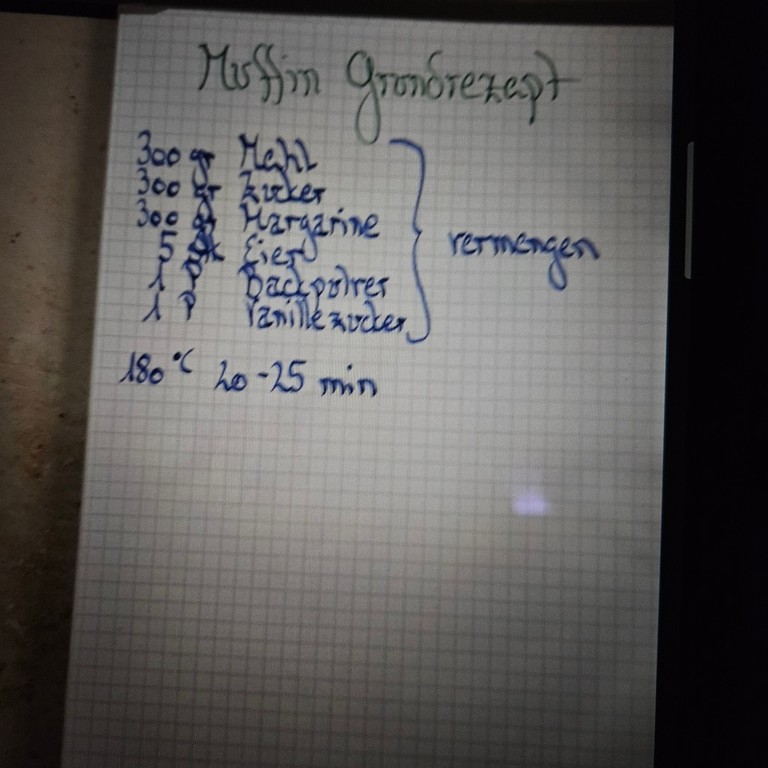 Muffin Grundrezept
300 gr Mehl
300 gr Zucker
300 gr Margarine
5 Eier
1 P Backpulver
1 P Vanillezucker
vermengen
180 °C 20-25 min